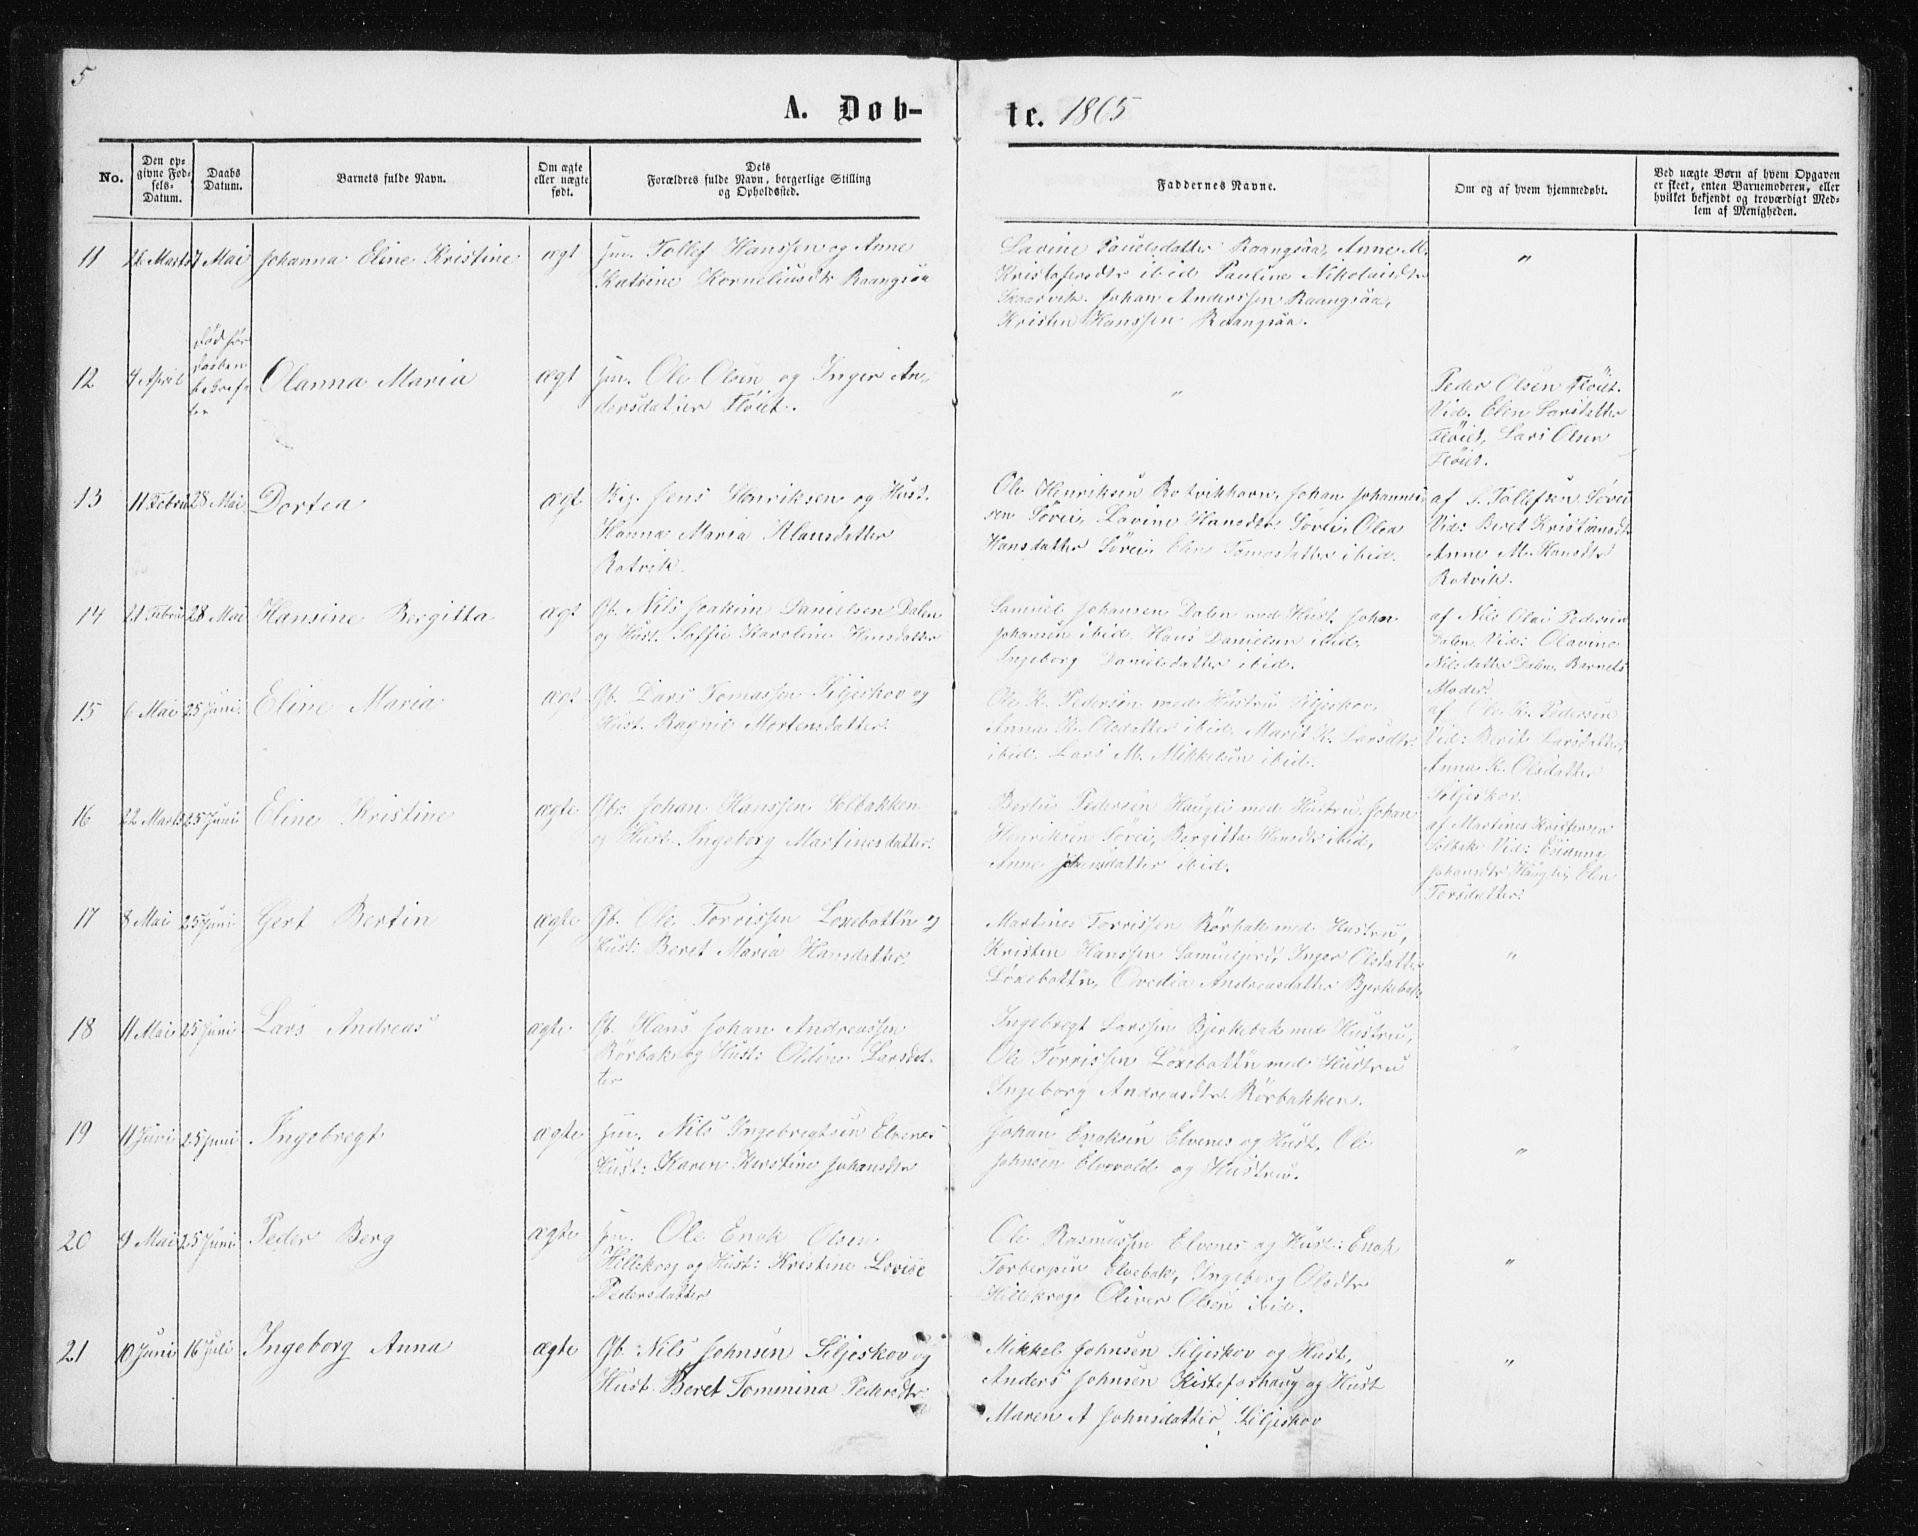 5
A. Døb-
te. 1865
No.
Den op-
givne Fød-
sels-
Datum.
Daabs
Datum.
Barnets fulde Navn.
Om ægte
eller uægte
født.
Dets
Forældres fulde Navn, borgerlige Stilling
og Opholdssted.
Faddernes Navne.
Om og af hvem hjemmedøbt.
Ved uægte Børn af hvem Opgaven
er skeet, enten Barnemoderen, eller
hvilket bekjendt og troværdigt Med-
lem af Menigheden.
11 26 Marts 7 Mai Johanna Eline Kristine ægt
Jn. Tollef Hanssen og Anne
Katrine Korneliusdtr Raangsaa
Lavine Pauelsdatter Raangsaa, Anne M.
Kristofersdtr ibid Pauline Nikolaidtr
Skaarvik. Johan Anderssen Raangsaa,
Kristen Hanssen Raangsaa.
"
12 4 April
død før
daaben
Olanna Maria ægt
Jn. Ole Olsen og Inger An-
dersdatter Fløiet.
"
Peder Olsen Fløiet.
Vid. Elen Larsdatter
Fløiet, Lars Olsen
Fløiet.
13 11 Febru 28 Mai Dortea ægt
Jens Henriksen og Hust.
Hanna Maria Klausdatter
Rotvik.
Ole Henriksen Rotvikhavn, Johan Johanne-
sen Sørei, Lavine Hansdtr Sørei, Olea
Hansdatter Sørei, Elen Tomasdatter ibid.
af S. Tollefsen Sørei
Vid: Beret Kristiansdtr
Anne M. Hansdtr
Rotvik.
14 21 Febru 28 Mai Hansine Bergitta ægt
Gb. Nils Joakim Danielsen Dalen
og Hust. Soffie Karoline Hansdatter
Samuel Johansen Dalen med Hust. John
Johansen ibid. Hans Danielsen ibid.
Ingeborg Danielsdatter ibid.
af Nils Olai Pedersen
Dalen Vid: Olavine
Nilsdatter Dalen, Barnets
Moder.
15 6 Mai 25 Juni. Eline Maria ægt
Gb. Lars Tomassen Siljeskov og
Hust. Ragnil Mortensdatter.
Ole K. Pedersen med Hustru Siljeskov,
Anna K. Olsdatter ibid. Marit K. Larsdtr
ibid. Lars M. Mikkelsen ibid.
af Ole K. Pedersen
Vid: Berit Larsdatter,
Anna K. Olsdatter
Siljeskov.
16 22 Marts 25 Juni Eline Kristine ægte
Gbr. Johan Hanssen Solbakken
og Hust. Ingeborg Martinesdatter.
Bertus Pedersen Haugli med Hustru, Johan
Henriksen Sørei, Bergitta Hansdtr ibid,
Anne Johansdatter ibid.
af Martines Kristensen
Solbak Vid:
Johansdtr Haugli, Elen
Torsdatter.
17 8 Mai 25 Juni Gert Bertin ægte
Gb. Ole Torrissen Løxebottn og
Hust: Beret Maria Hansdatter.
Martines Torrissen Rørbak med Hustru,
Kristen Hanssen Samueljord, Inger Olsdatter
Løxebottn, Ovedia Andreasdatter Bjerkebak
"
18 11 Mai 25 Juni Lars Andreas ægte
Gb. Hans Johan Andreassen
Rørbak og Hust: Larsdat-
ter
Ingebregt Larssen Bjerkebak med Hustru,
Ole Torrissen Løxebottn med Hustru
Ingeborg Andreasdtr. Rørbakken.
"
19 11 Juni 25 Juni Ingebregt ægte
Jn. Nils Ingebregtsen Elvenes
Hust: Karen Kerstine Johansdtr
Johan Enoksen Elvenes og Hust, Ole
Johnsen Elvevold og Hustru.
"
20 9 Mai 25 Juni Peder Berg ægte
Jn. Ole Enok Olsen
Hillekrog og Hust: Kristine Lovise
Pedersdatter
Ole Rasmussen Elvenes og Hust: Enok
Torbersen Elvebak, Ingeborg Olsdtr
Hillekrog, Oliver Olsen ibid.
"
21 10 Juni 16 Juli Ingeborg Anna ægte
Gb. Nils Johnsen Siljeskov og
Hust. Beret Tommina Pedersdtr.
Mikkel Johnsen Siljeskov og Hust,
Anders Johnsen Kistefoshaug og Hust
Maren A Johnsdatter, Siljeskov
"